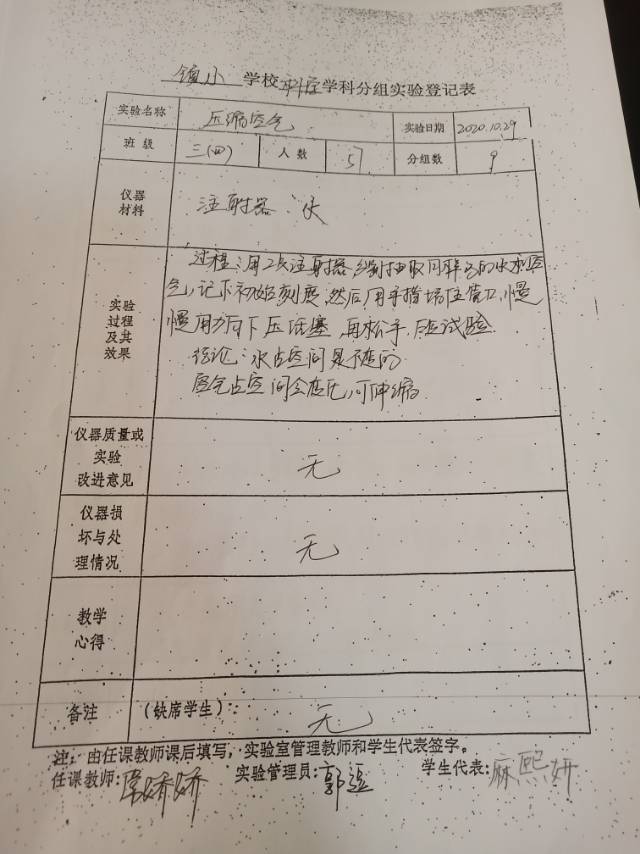 镇小 学校 科学 学科分组实验登记表
实验名称 压缩空气 实验日期 2020.10.29
班 级 三(四) 人 数 57 分组数 9
仪器
材料
注射器 水
实验
过程
及其
效果
过程:用2支注射器,分别抽取同样多的水和空
气,记下初始刻度,然后用手指堵住管口,慢
慢用力向下压活塞,再松手,反复试验
结论:水占空间是不变的
空气占空间会变化,可伸缩
仪器质量或
实验
改进意见
无
仪器损
坏与处
理情况
无
教学
心得
备注 (缺席学生): 无
注:由任课教师课后填写,实验室管理教师和学生代表签字。
任课教师:常娇娇 实验管理员:郭 学生代表:麻熙妍